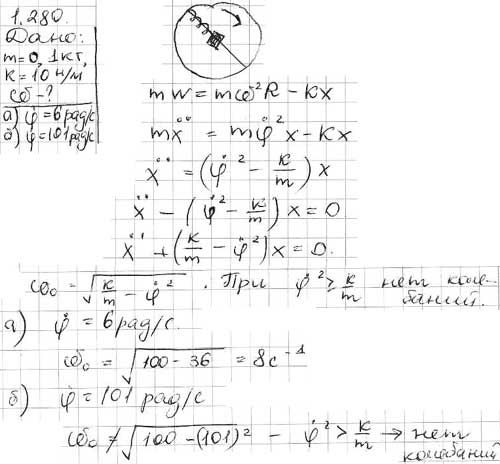 1.280.
Дано:
m=0,1кг,
k=10 н/м
ω-?
а) φ̇=6рад/с
б) φ̇=101рад/с
mW=mω²R-kx
mẍ = mφ̇²x-kx
ẍ = (φ̇² - k/m) x
ẍ - (φ̇² - k/m) x = 0
ẍ + (k/m - φ̇²) x = 0.
ω₀ = √(k/m - φ̇²) . При φ̇² ≥ k/m нет коле-
баний.
а) φ̇ = 6рад/с.
ω₀ = √(100-36) = 8с⁻¹
б) φ̇ = 101 рад/с
ω₀ ≠ √(100-(101)²) - φ̇² > k/m → нет
колебаний